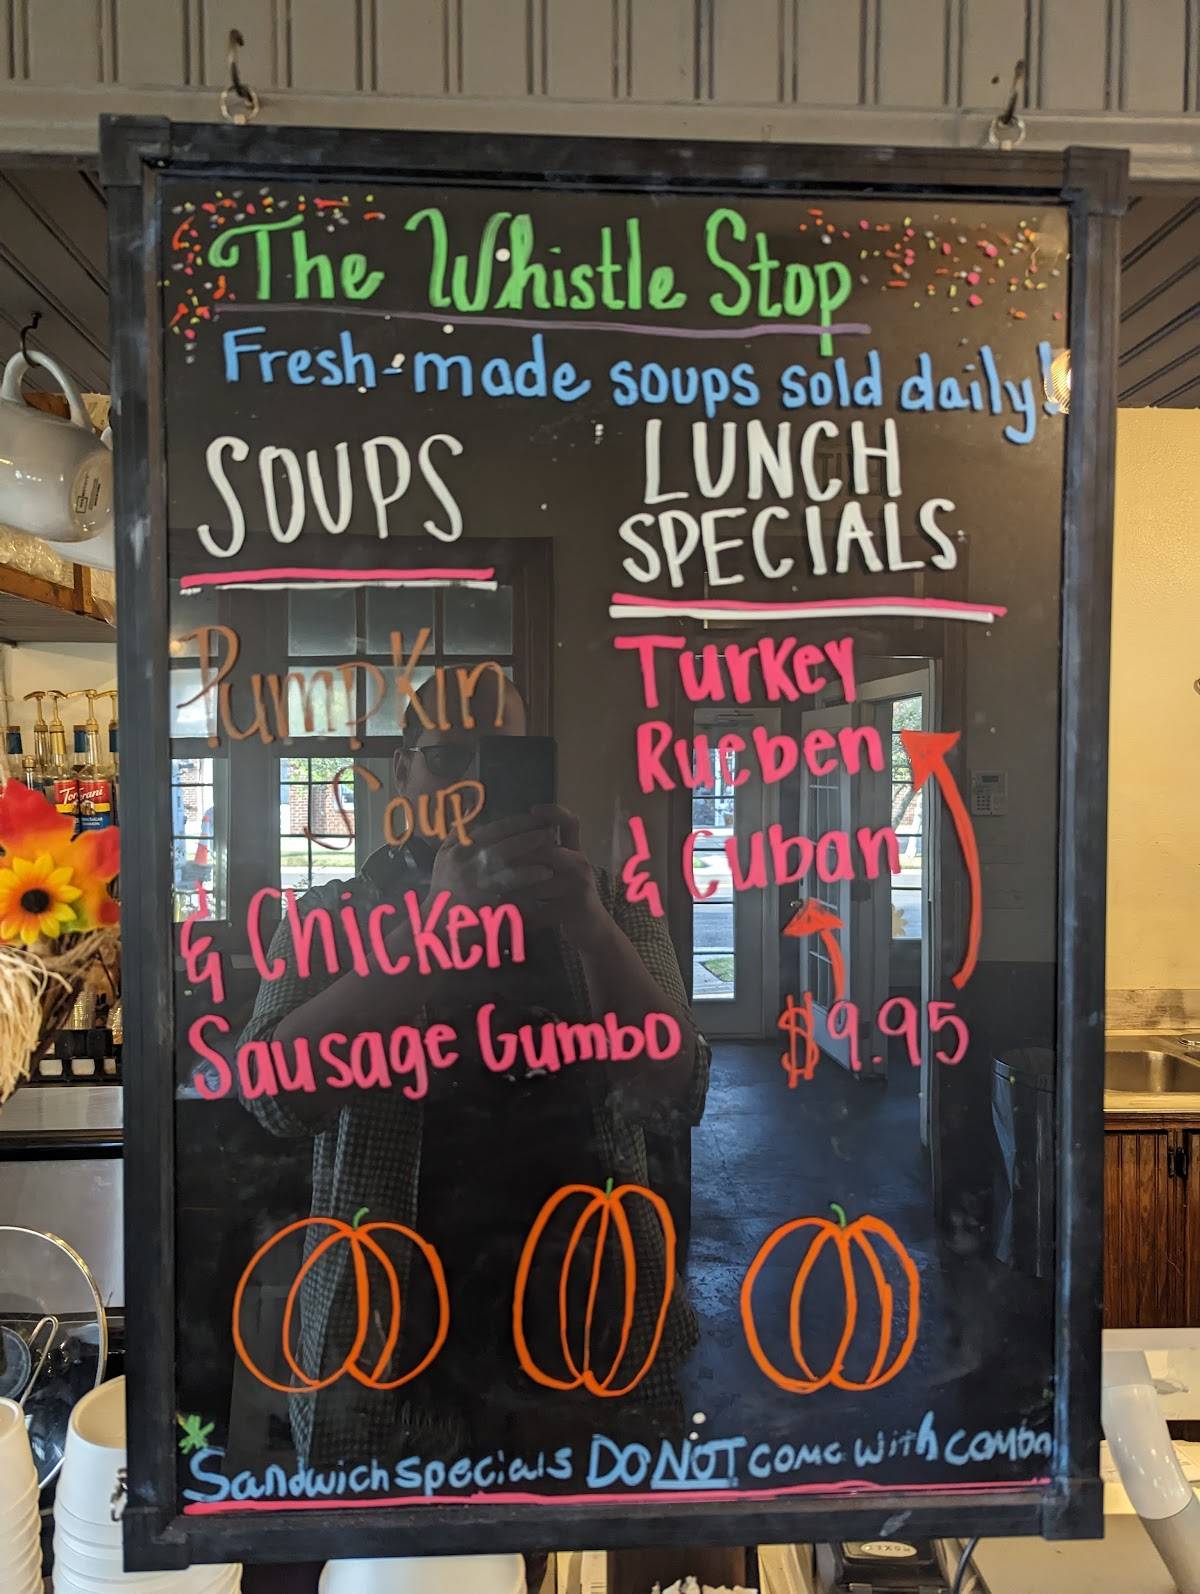 The Whistle Stop
Fresh-made soups sold daily!
SOUPS
Pumpkin
Soup
& Chicken
Sausage Gumbo
LUNCH
SPECIALS
Turkey
Rueben
& Cuban
$9.95
*Sandwich specials DO NOT come with combo
Torani